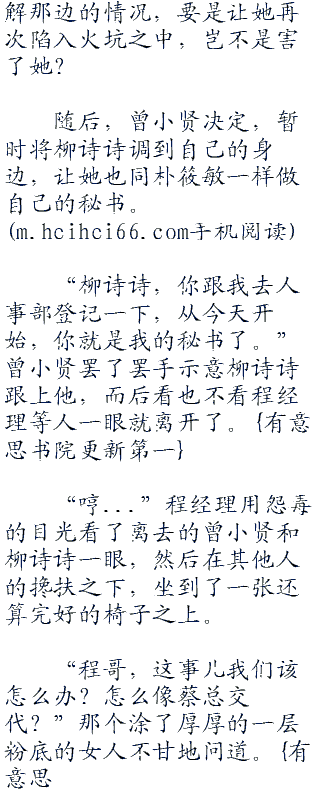 解那边的情况，要是让她再
次陷入火坑之中，岂不是害
了她？
随后，曾小贤决定，暂
时将柳诗诗调到自己的身
边，让她也同朴筱敏一样做
自己的秘书。
(m.hcihci66.com手机阅读)
“柳诗诗，你跟我去人
事部登记一下，从今天开
始，你就是我的秘书了。”
曾小贤罢了罢手示意柳诗诗
跟上他，而后看也不看程经
理等人一眼就离开了。{有意
思书院更新第一}
“哼...”程经理用怨毒
的目光看了离去的曾小贤和
柳诗诗一眼，然后在其他人
的搀扶之下，坐到了一张还
算完好的椅子之上。
“程哥，这事儿我们该
怎么办？怎么像蔡总交
代？”那个涂了厚厚的一层
粉底的女人不甘地问道。{有
意思